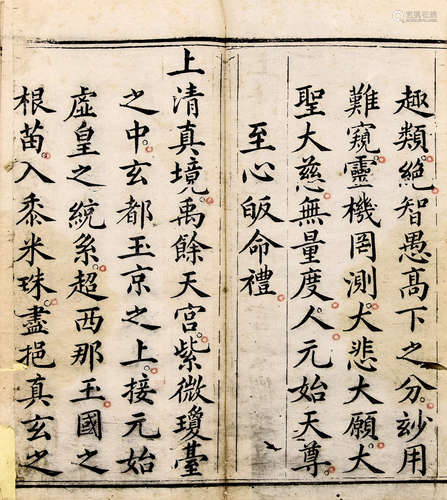 趣類。絶智愚高下之分。玅用
難窺。靈機罔測。大悲大願。大
聖大慈。無量度人。元始天尊。
至心皈命禮。
上清真境。禹餘天宮。紫微瓊臺
之中。玄都玉京之上。接元始
虛皇之統系。超西那玉國之
根苗。入黍米珠。盡挹真玄之